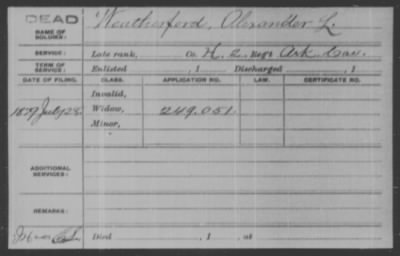 DEAD
NAME OF SOLDIER: Weatherford, Alexander L.
SERVICE: Late rank, Co. H. 2 Reg't Ark. Cav.
TERM OF SERVICE: Enlisted , 1 Discharged , 1
DATE OF FILING. CLASS. APPLICATION NO. LAW. CERTIFICATE NO.
Invalid,
1879 July 28. Widow, 249.051.
Minor,
ADDITIONAL SERVICES:
REMARKS:
Died , 1 , at